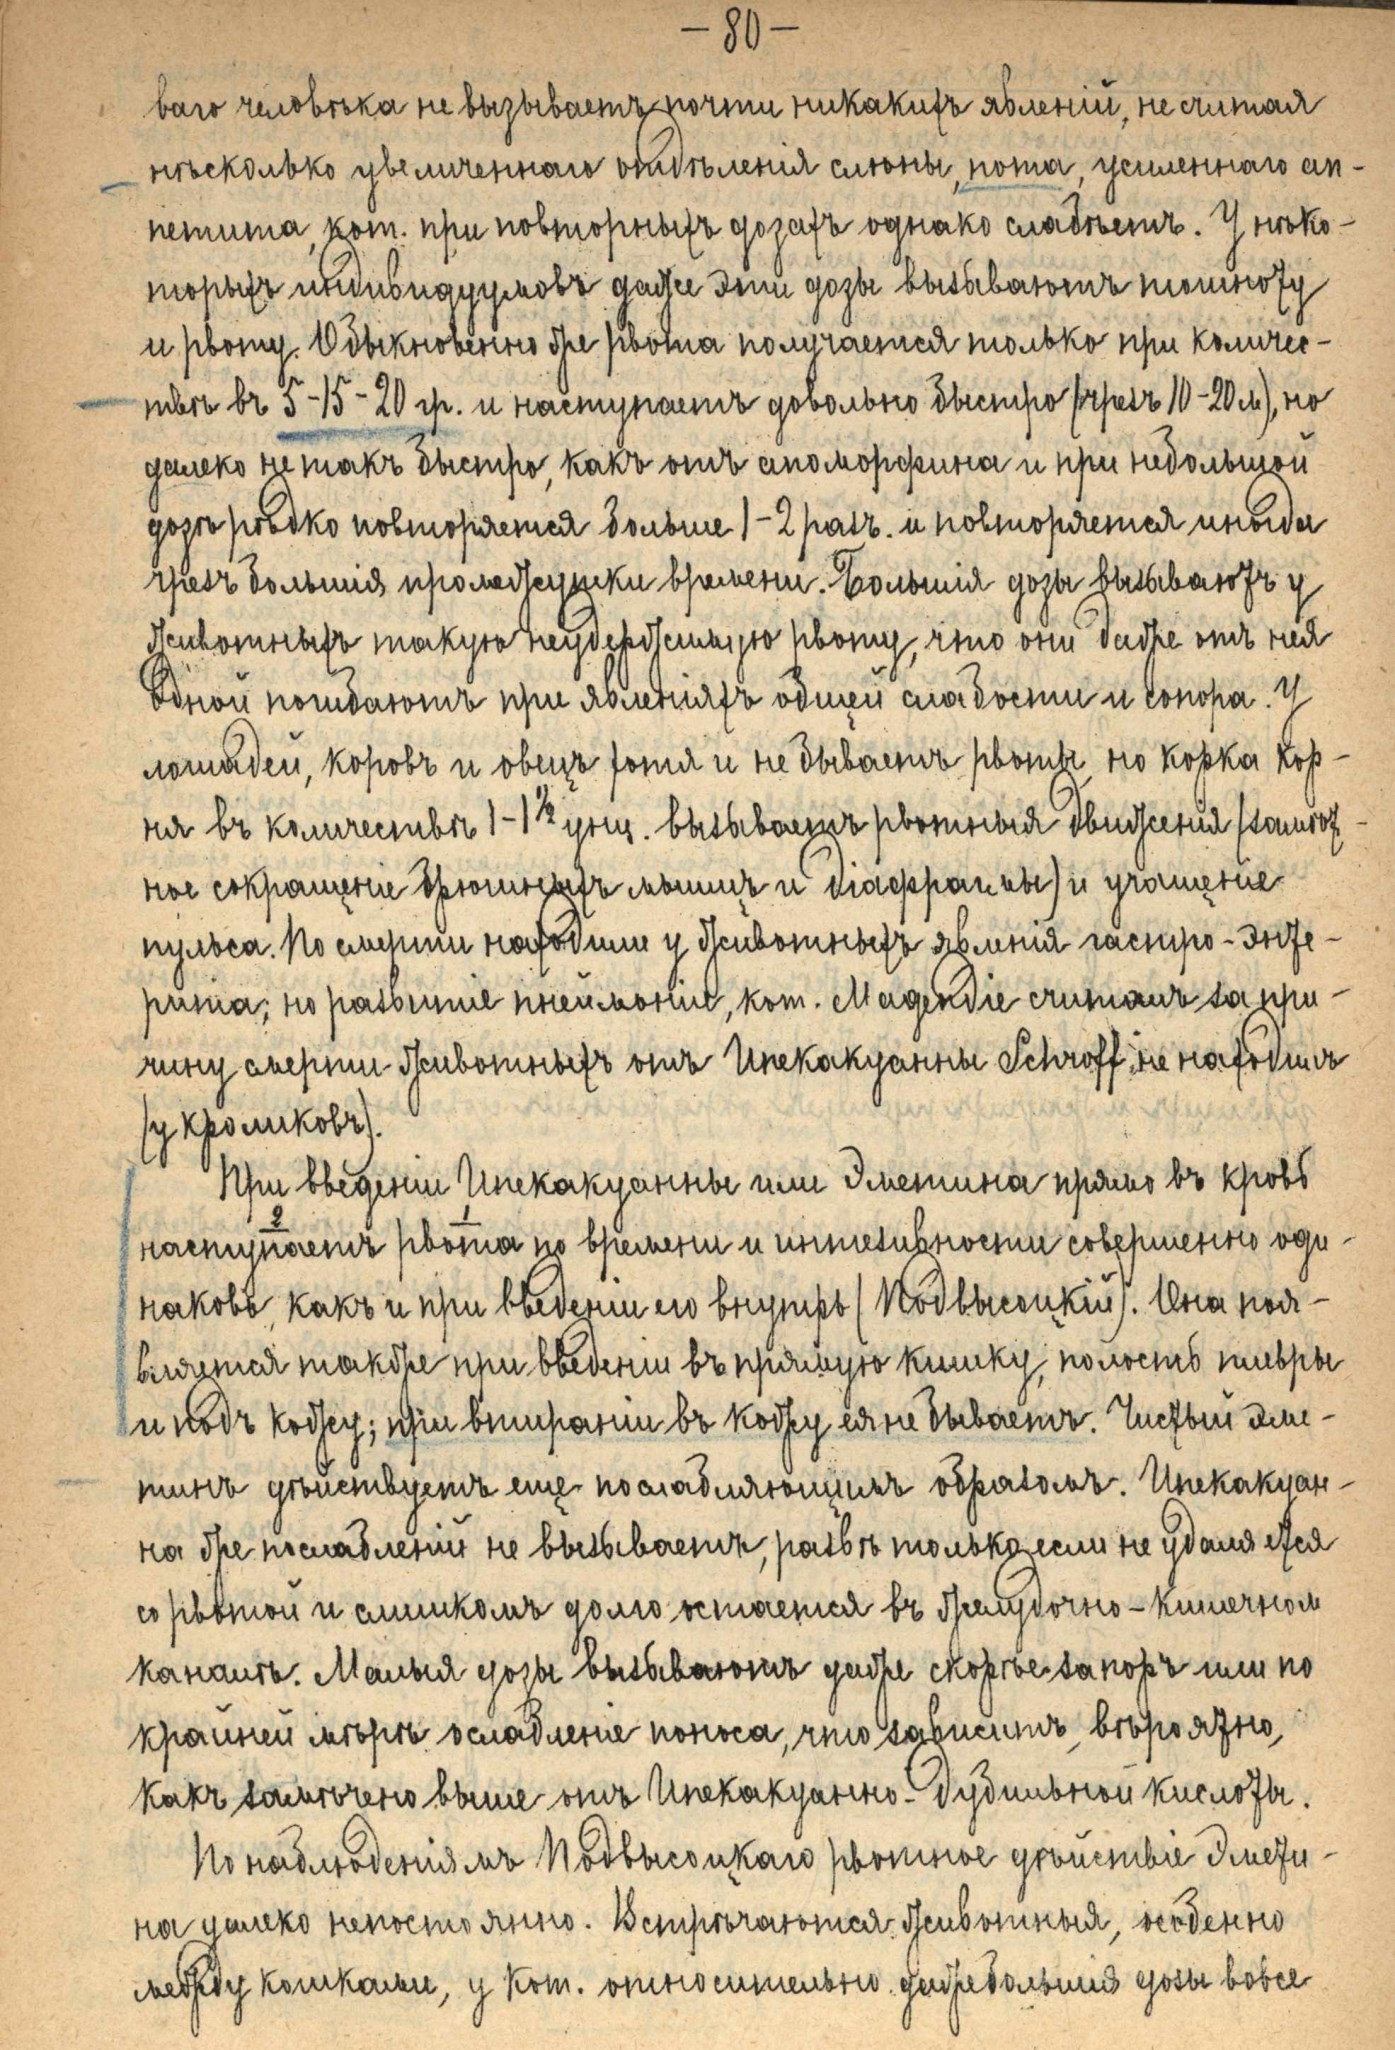 – 80 –
ваго человѣка не вызываетъ почти никакихъ явленій, не считая
нѣсколько увеличеннаго отдѣленія слюны, пота, усиленнаго ап-
петита, кот. при повторныхъ дозахъ однако слабѣетъ. У нѣко-
торыхъ индивидуумовъ даже эти дозы вызываютъ тошноту
и рвоту. Обыкновенно же рвота получается только при количес-
твѣ въ 5-15-20 гр. и наступаетъ довольно быстро (чрезъ 10-20 м), но
далеко не такъ быстро, какъ отъ апоморфина и при небольшой
дозѣ рѣдко повторяется больше 1-2 разъ. и повторяется иногда
чрезъ большія промежутки времени. Большія дозы вызываютъ у
животныхъ такую неудержимую рвоту, что они даже отъ нея
одной погибаютъ при явленіяхъ общей слабости и сопора. У
лошадей, коровъ и овецъ хотя и не бываетъ рвоты, но корка кор-
ня въ количествѣ 1-1 1/2 унц. вызываетъ рвотныя движенія (замѣт-
ное сокращеніе брюшныхъ мышцъ и діафрагмы) и учащеніе
пульса. По смерти находили у животныхъ явленія гастро-энте-
рита; но развитіе пнеймоніи, кот. Мадендіе считалъ за при-
чину смерти животныхъ отъ Ипекакуанны Schroff не находилъ
(у кроликовъ).
При введеніи Ипекакуанны или Эметина прямо въ кровь
2 1
наступаетъ рвота по времени и интезивности совершенно оди-
наковъ, какъ и при введеніи его внутрь (Подвысоцкій). Она поя-
вляется также при введеніи въ прямую кишку, полость плевры
и подъ кожу; при втираніи въ кожу ея не бываетъ. Чистый эме-
тинъ дѣйствуетъ еще послабляющимъ образомъ. Ипекакуан-
на же послабленій не вызываетъ, развѣ только если не удаляется
со рвотой и слишкомъ долго остается въ желудочно-кишечном
каналѣ. Малыя дозы вызываютъ даже скорѣе запоръ или по
крайней мѣрѣ ослабленіе поноса, что зависитъ, вѣроятно,
какъ замѣчено выше отъ Ипекакуанно-дубильной кислоты.
По наблюденіямъ Подвысоцкаго рвотное дѣйствіе Эмети-
на далеко непостоянно. Встрѣчаются животныя, особенно
между кошками, у кот. относительно даже большія дозы вовсе